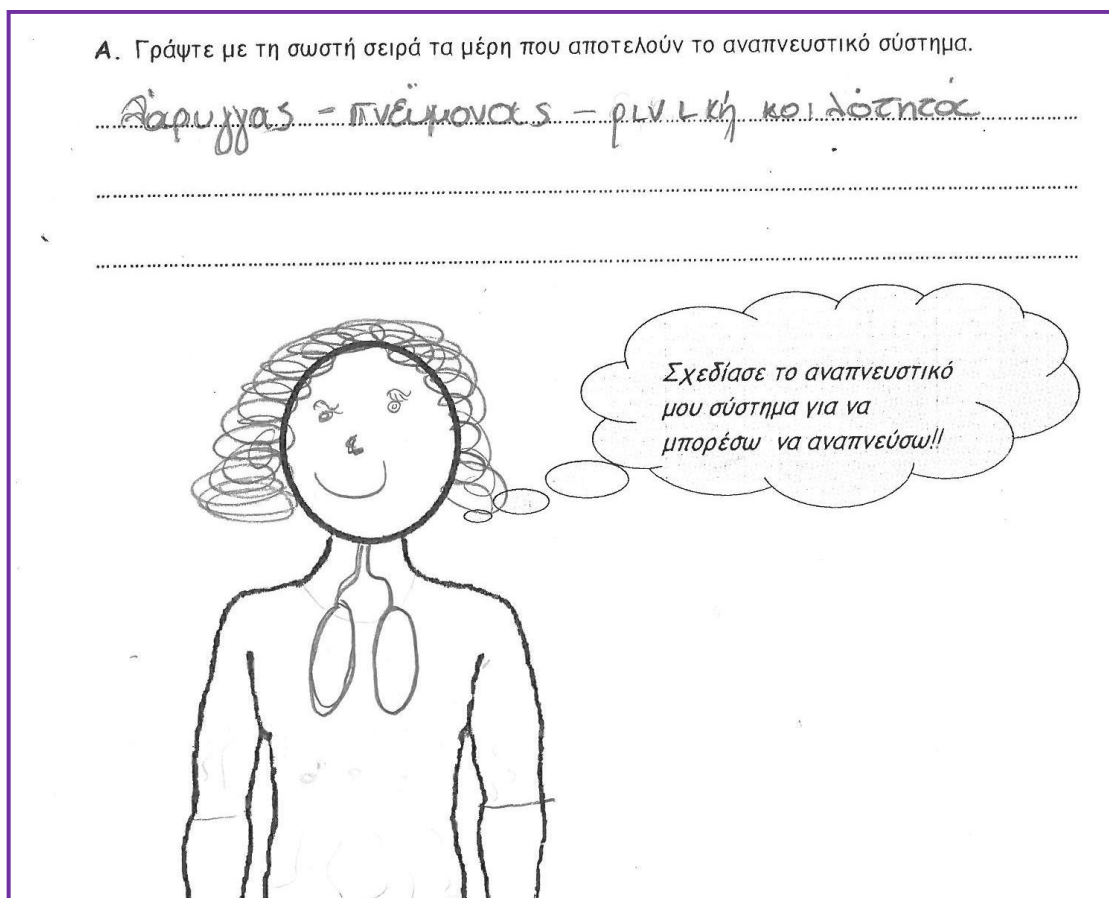 Α. Γράψτε με τη σωστή σειρά τα μέρη που αποτελούν το αναπνευστικό σύστημα.
λάρυγγας - πνεύμονας - ρινική κοιλότητας
Σχεδίασε το αναπνευστικό
μου σύστημα για να
μπορέσω να αναπνεύσω!!